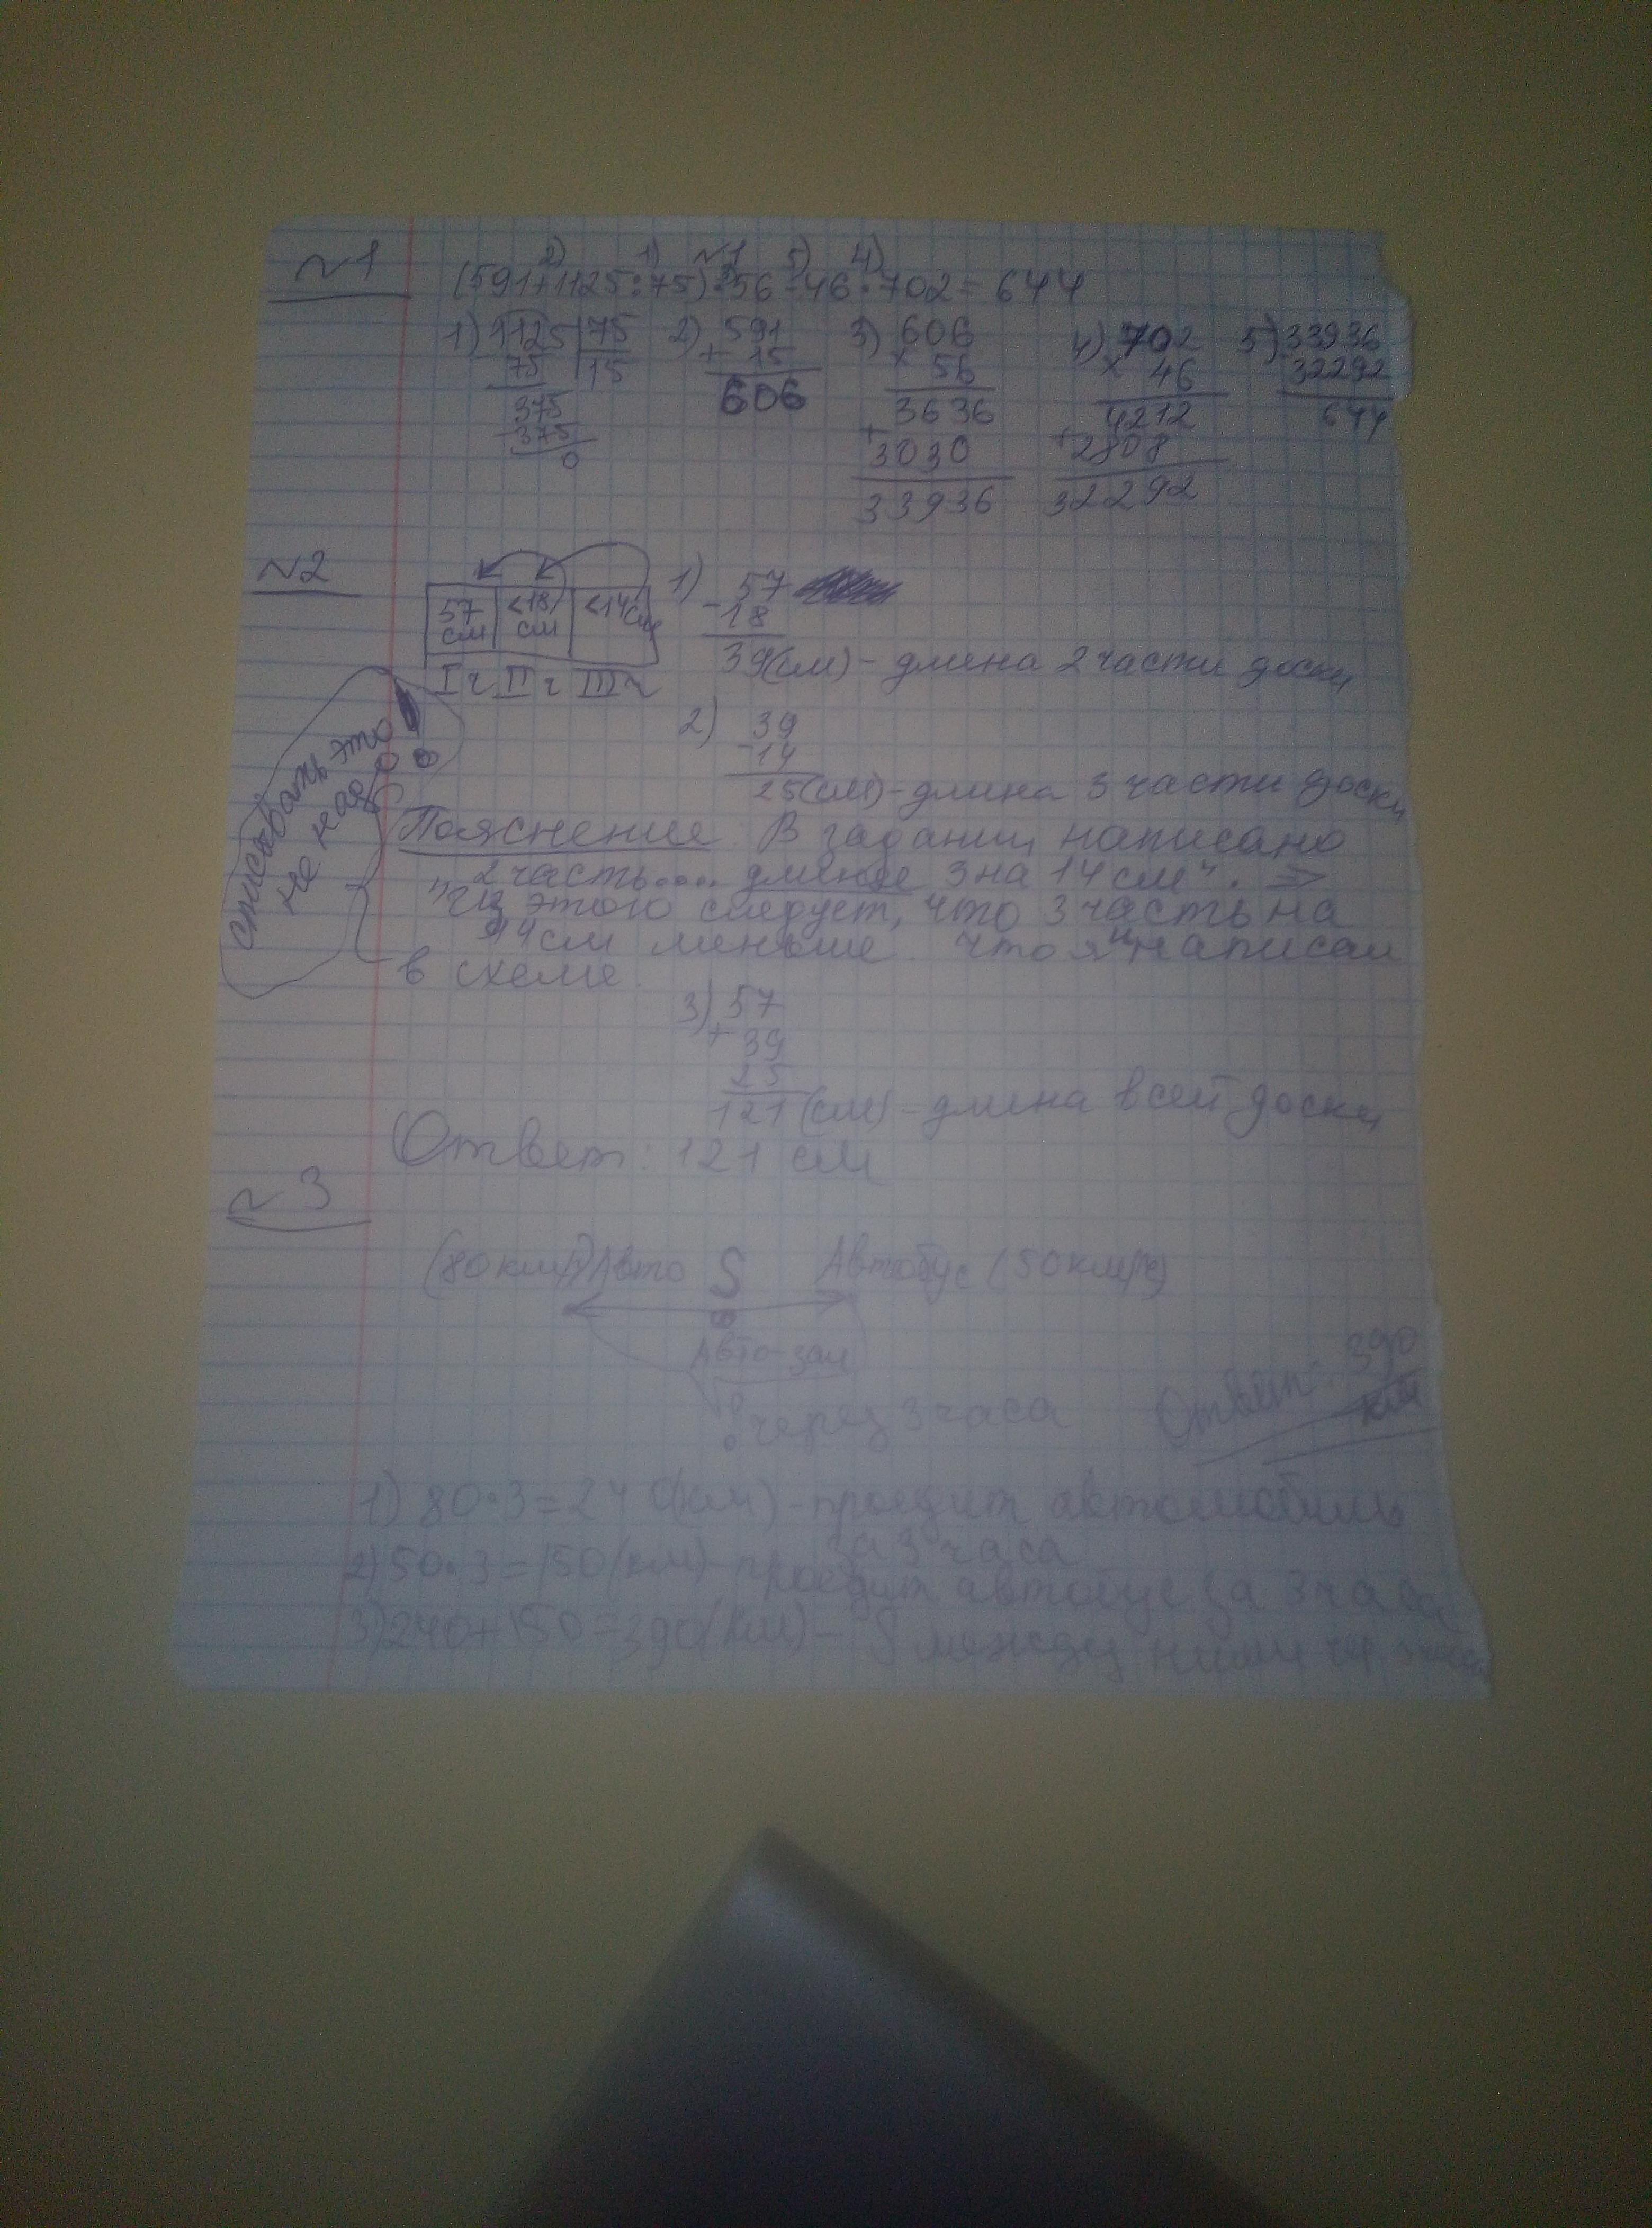 №1
2) 1) №1 3) 5) 4)
(591+1125:75)·56-46·702=644
1) 1125|75
75 15
375
-375
0
2) 591
+ 15
606
3) 606
× 56
3636
+
3030
33936
4) 702
× 46
4212
+2808
32292
5) 33936
32292
644
№2
57 см
<18 см
<14см
I ч II ч III ч
1) 57
-18
39(см) - длина 2 части доски
2) 39
-14
25(см) - длина 3 части доски
списывать это
не надо!
Пояснение. В задании написано
"2 часть.... длинее 3 на 14 см". =>
Из этого следует, что 3 часть на
14 см меньше. что я и написал
в схеме.
3) 57
+ 39
25
121(см) - длина всей доски
Ответ: 121 см
№3
(80км/ч)Авто S Автобус (50км/ч)
Авто-зал
? через 3 часа
Ответ: 390
км
1) 80·3=240(км) - проедит автомобиль
за 3 часа
2) 50·3=150(км) - проедит автобус за 3 часа
3) 240+150=390(км) - S между ними